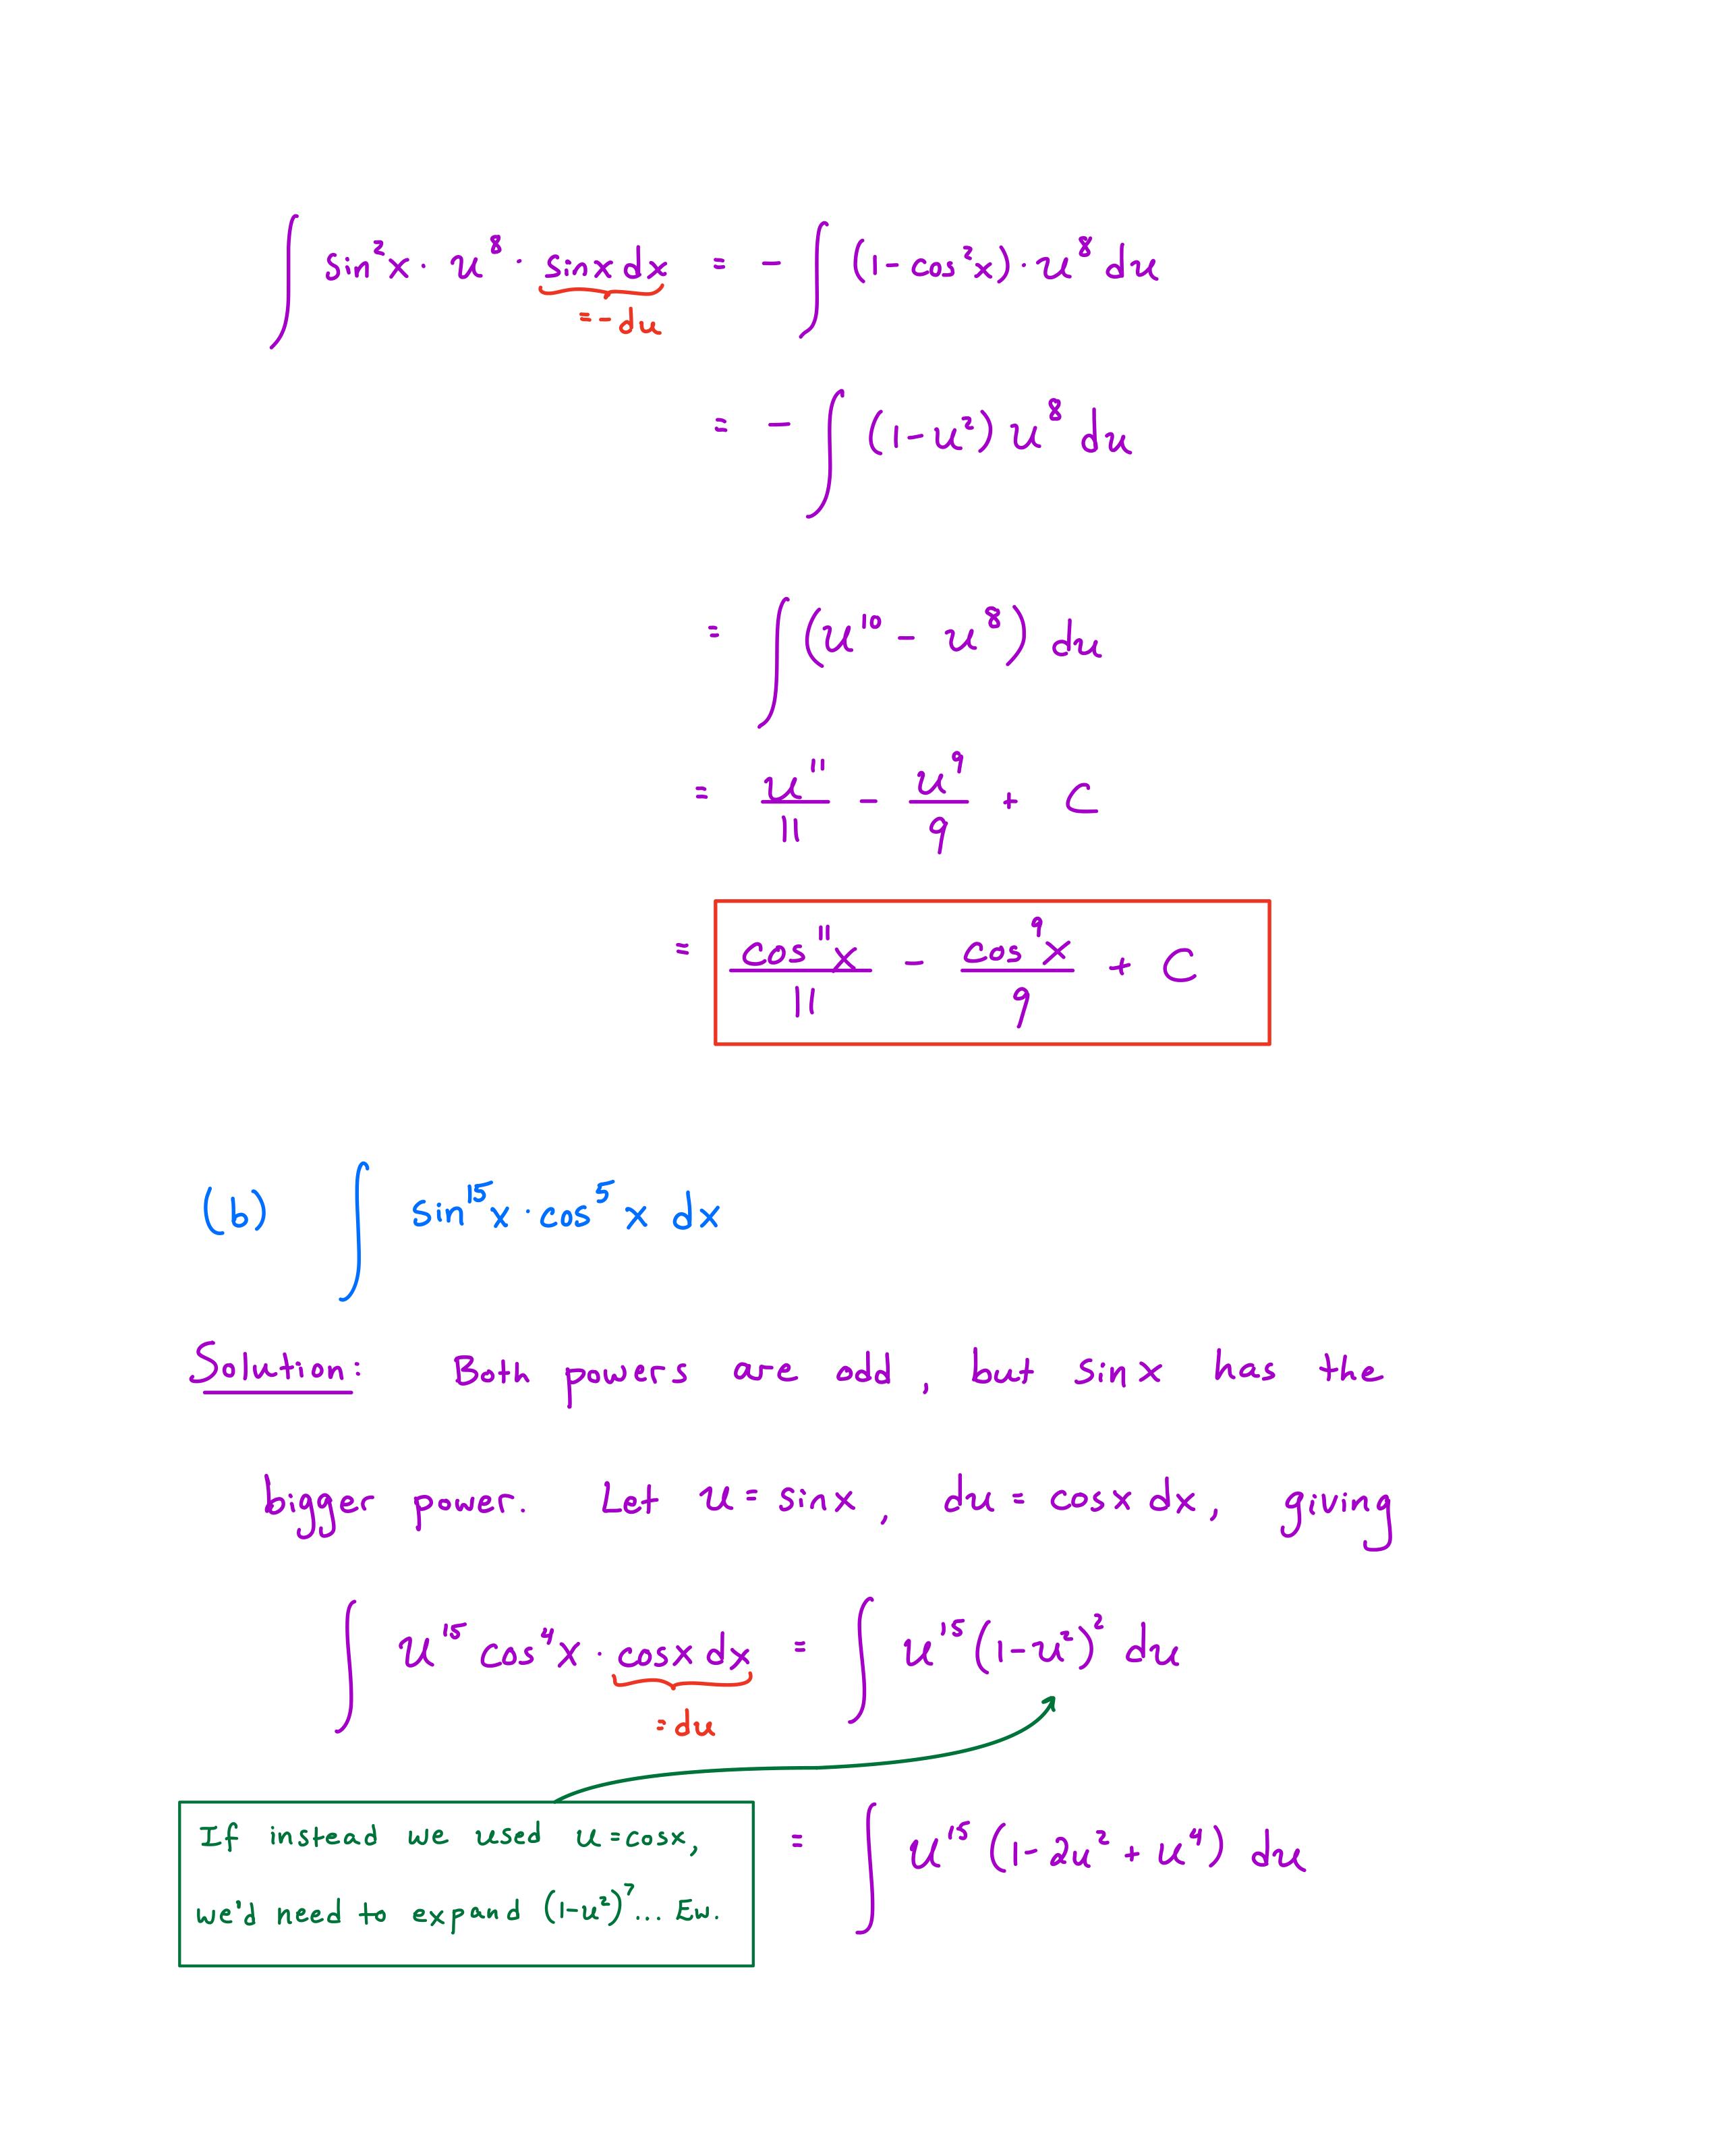 ∫ sin²x · u⁸ · sinx dx = - ∫ (1 - cos²x) · u⁸ du
= - du
= - ∫ (1 - u²) u⁸ du
= ∫ (u¹⁰ - u⁸) du
= u¹¹/11 - u⁹/9 + C
= cos¹¹x/11 - cos⁹x/9 + C
(b) ∫ sin¹⁵x · cos⁵x dx
Solution: Both powers are odd, but sinx has the
bigger power. Let u = sinx, du = cosx dx, giving
∫ u¹⁵ cos⁴x · cosx dx = ∫ u¹⁵ (1 - u²)² du
= du
If instead we used u = cosx,
we'd need to expand (1 - u²)⁷... Ew.
= ∫ u¹⁵ (1 - 2u² + u⁴) du